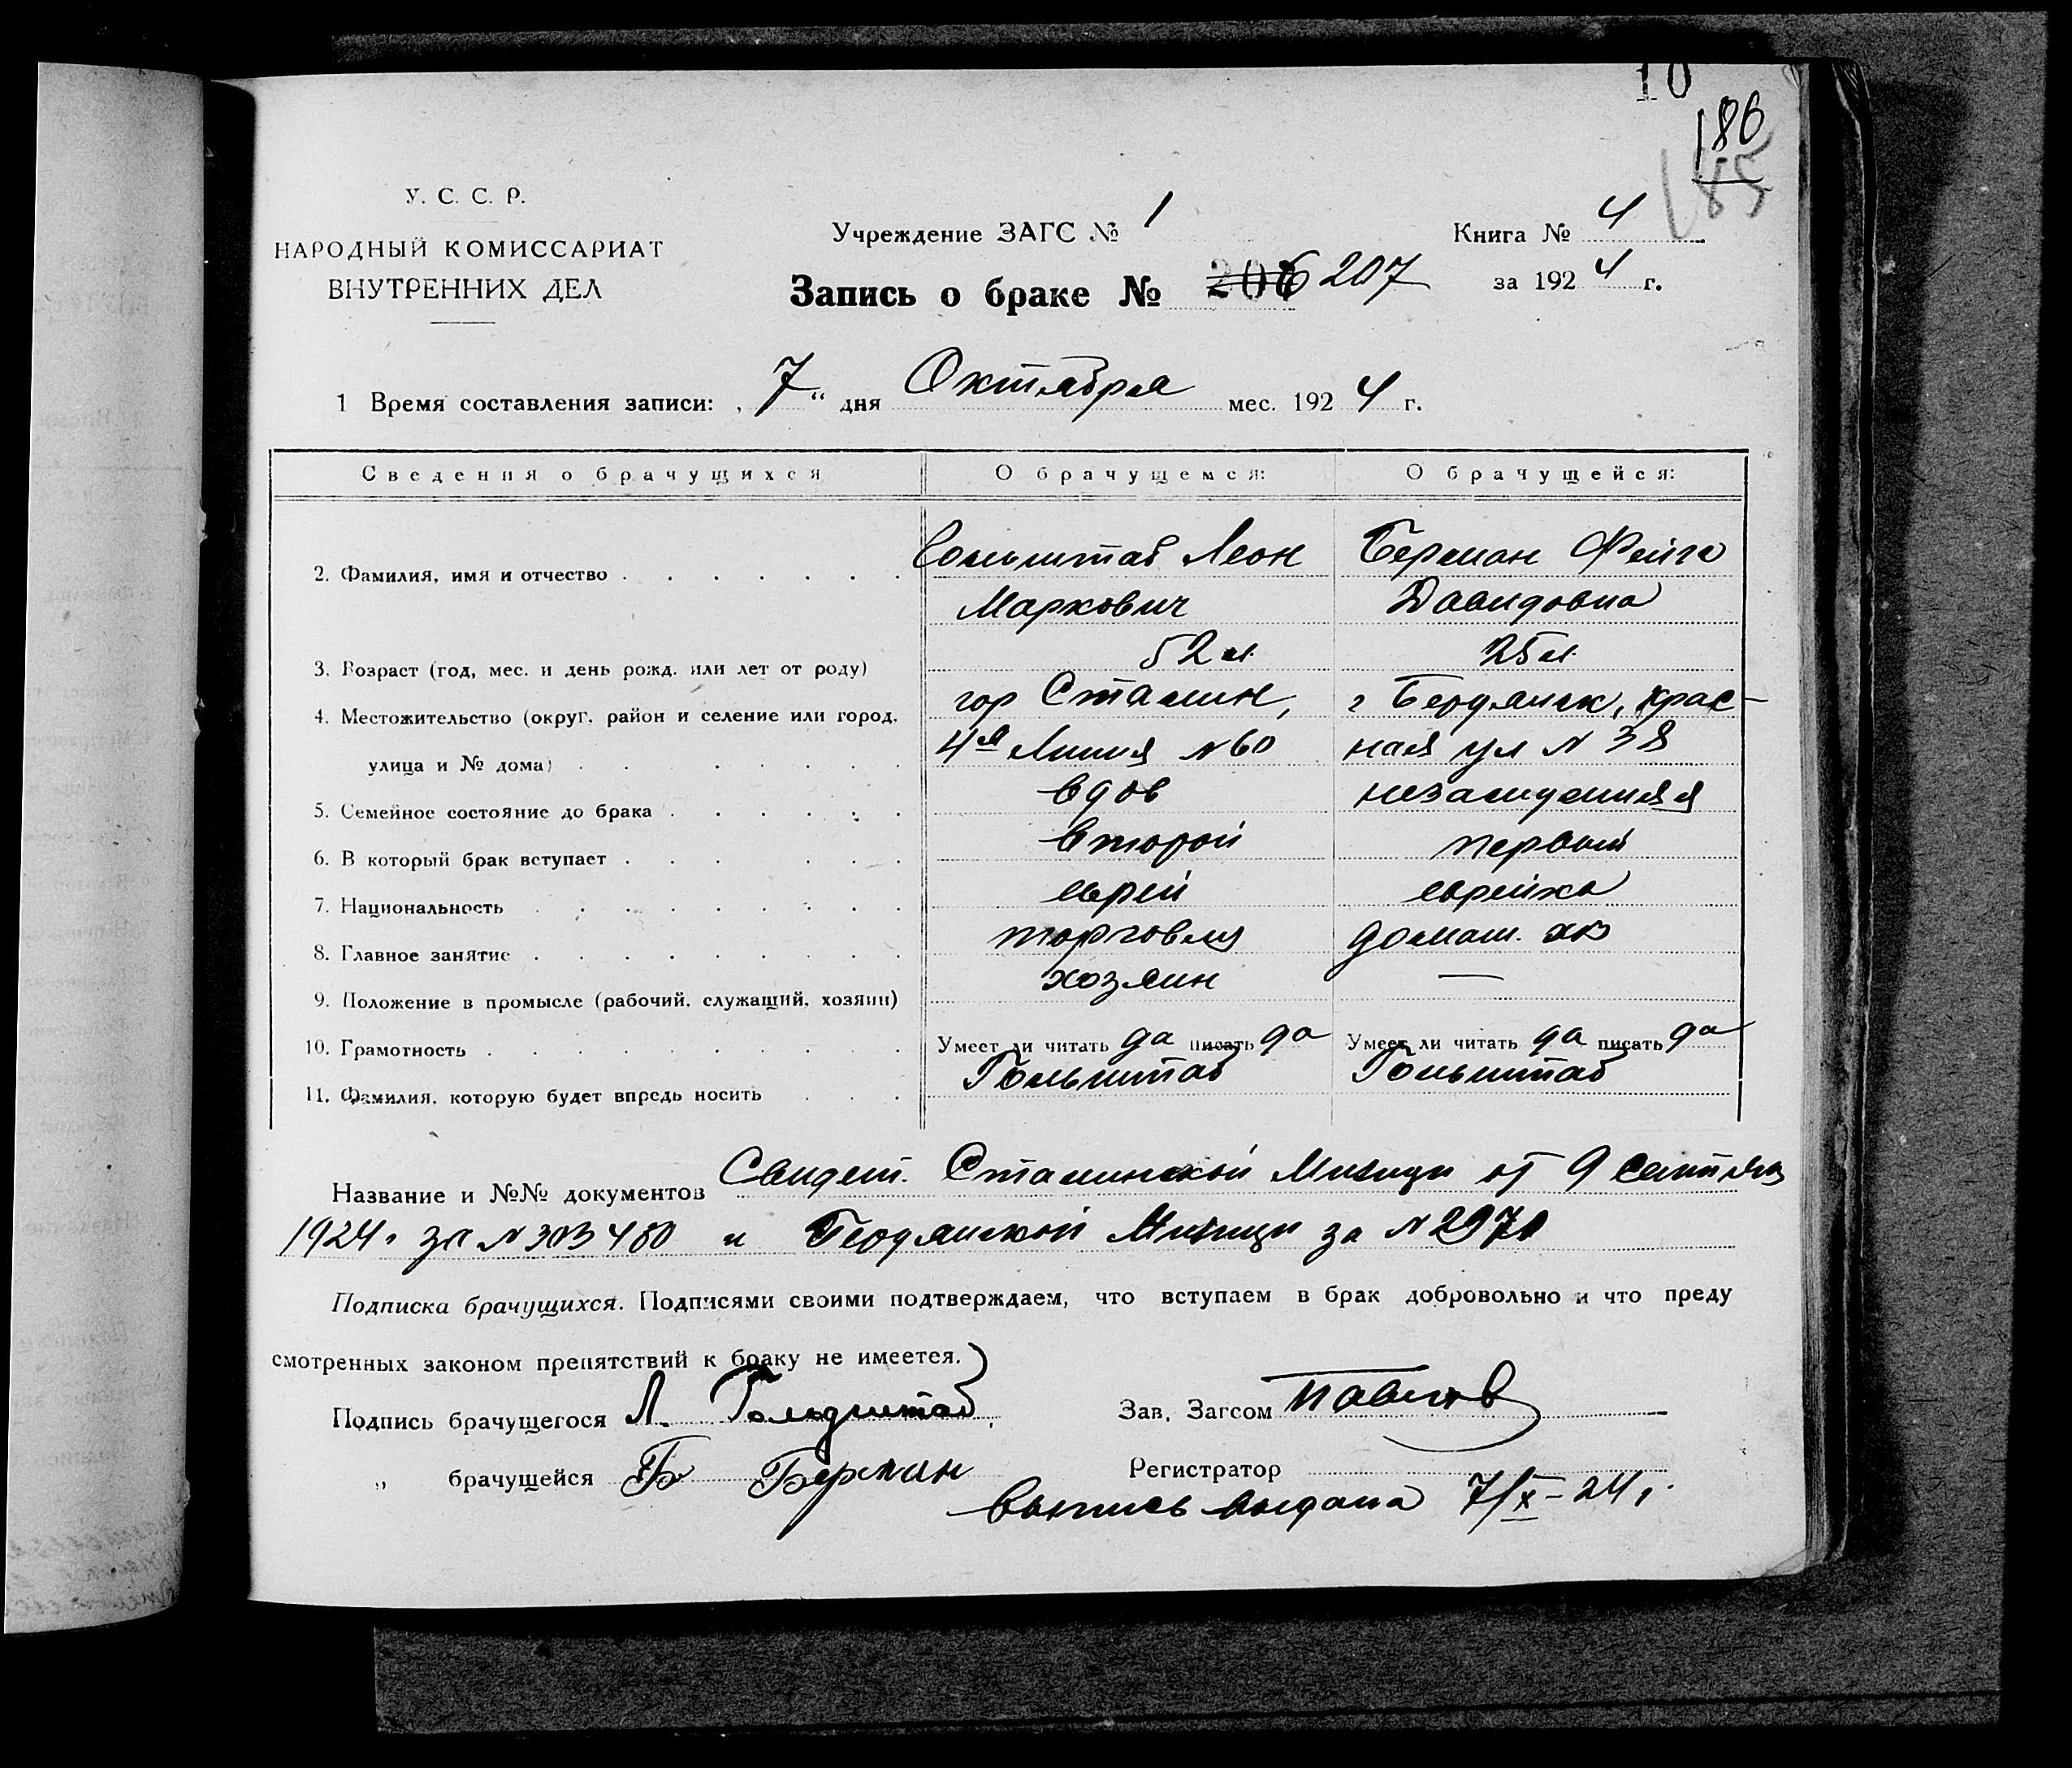 10
186
185
У. С. С. Р.
НАРОДНЫЙ КОМИССАРИАТ
ВНУТРЕННИХ ДЕЛ
Учреждение ЗАГС № 1
Книга № 4
Запись о браке № 206 207
за 1924 г.
1 Время составления записи: „7“ дня Октября мес. 1924 г.
Сведения о брачущихся О брачущемся: О брачущейся:
2. Фамилия, имя и отчество Гольштаб Леон Маркович Берман Фейга Давидовна
3. Возраст (год, мес. и день рожд. или лет от роду) 52 л. 25 л.
4. Местожительство (округ, район и селение или город, гор Сталин, г Бердянск, Крас-
улица и № дома) 4я Линия №60 ная ул № 38
5. Семейное состояние до брака вдов незамужняя
6. В который брак вступает второй первый
7. Национальность еврей еврейка
8. Главное занятие торговля домаш. хоз
9. Положение в промысле (рабочий, служащий, хозяин) хозяин —
10. Грамотность Умеет ли читать да писать да Умеет ли читать да писать да
11. Фамилия, которую будет впредь носить Гольштаб Гольштаб
Название и №№ документов Свидет. Сталинской Милиции от 9 сентября
1924 г за № 303480 и Бердянской Милиции за №2971
Подписка брачущихся. Подписями своими подтверждаем, что вступаем в брак добровольно и что преду
смотренных законом препятствий к браку не имеется.
Подпись брачущегося Л. Гольдштаб Зав. Загсом Павлов
„ брачущейся Берман Регистратор
Выпись выдана 7/X-24 г.